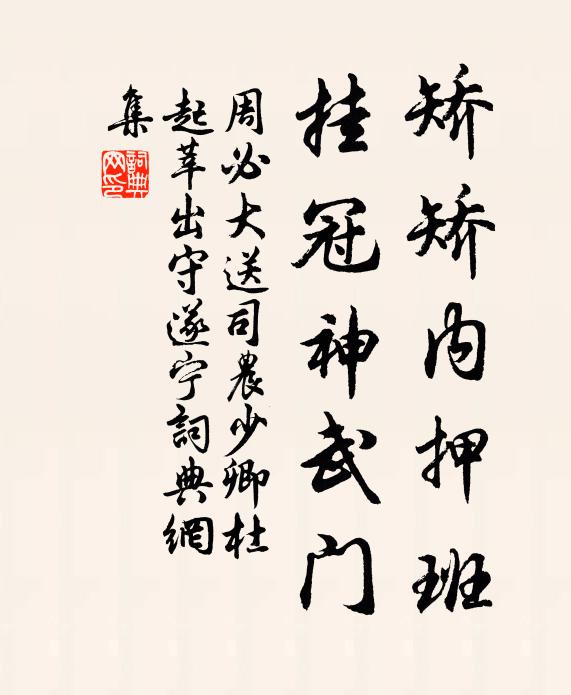 矫矫内押班
挂冠神武门
周必大送司農少卿杜
起莘出守遂宁詞典網
集
詞典网印